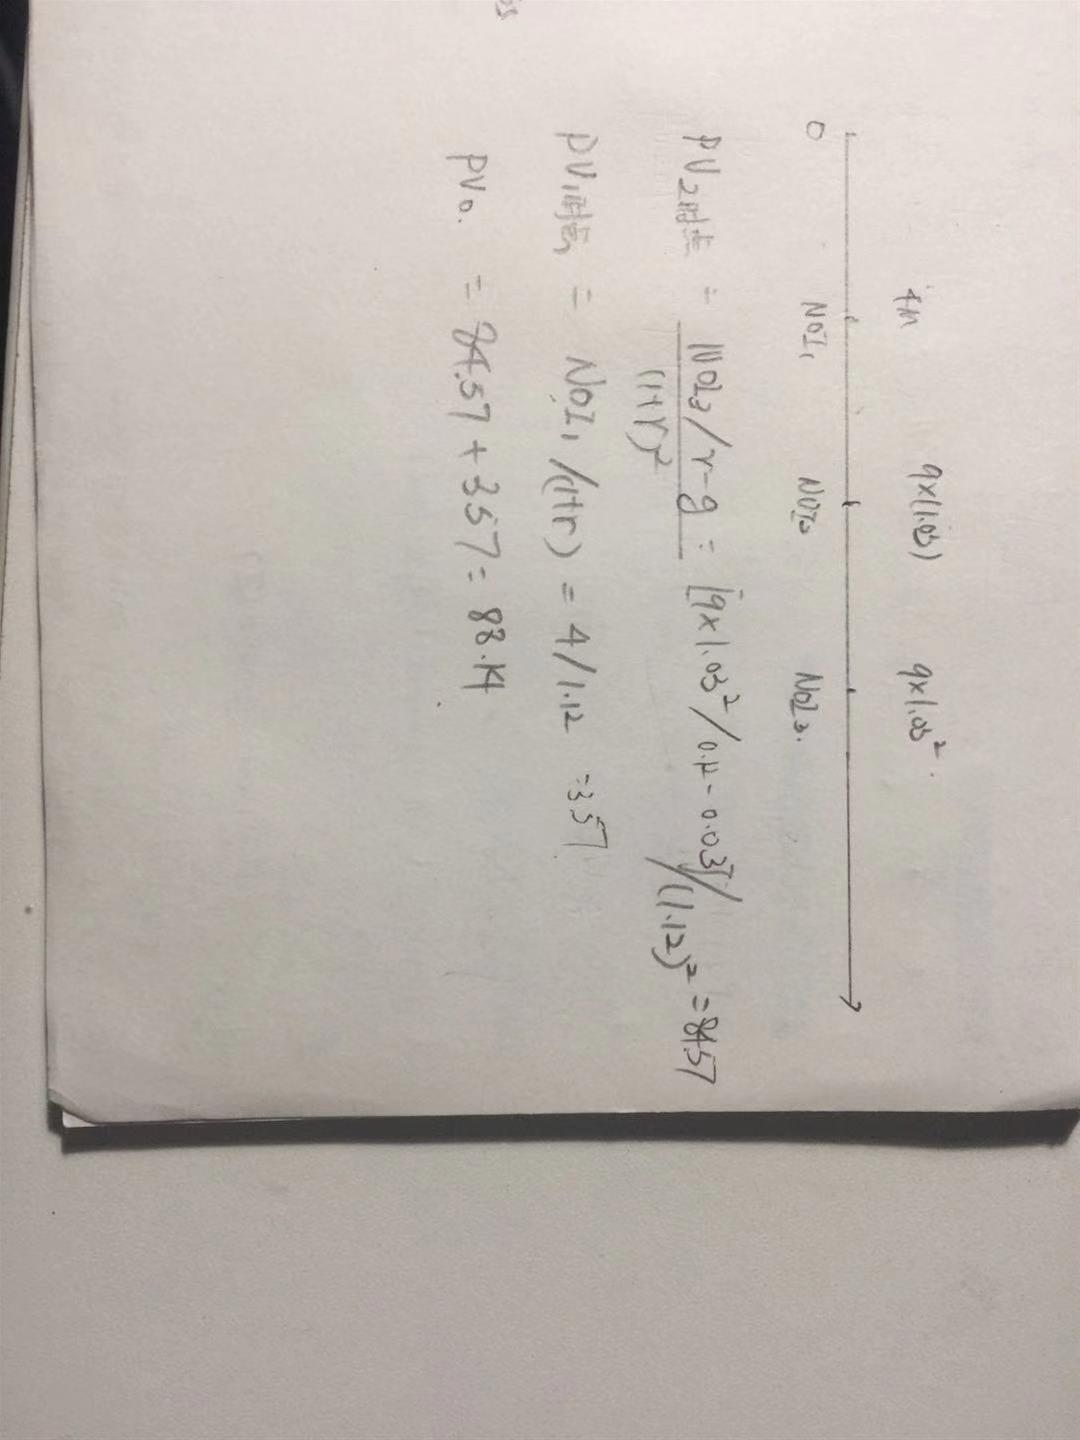 4m 9×(1.03) 9×1.03².
0 NOI₁ NOI₂ NOI₃.
PV₂时点 = NOI₃/r-g = [9×1.03²/0.12-0.03]/(1.12)² = 84.57
(1+r)²
PV₁时点 = NOI₁/(1+r) = 4/1.12 = 3.57
PV₀. = 84.57 + 3.57 = 88.14